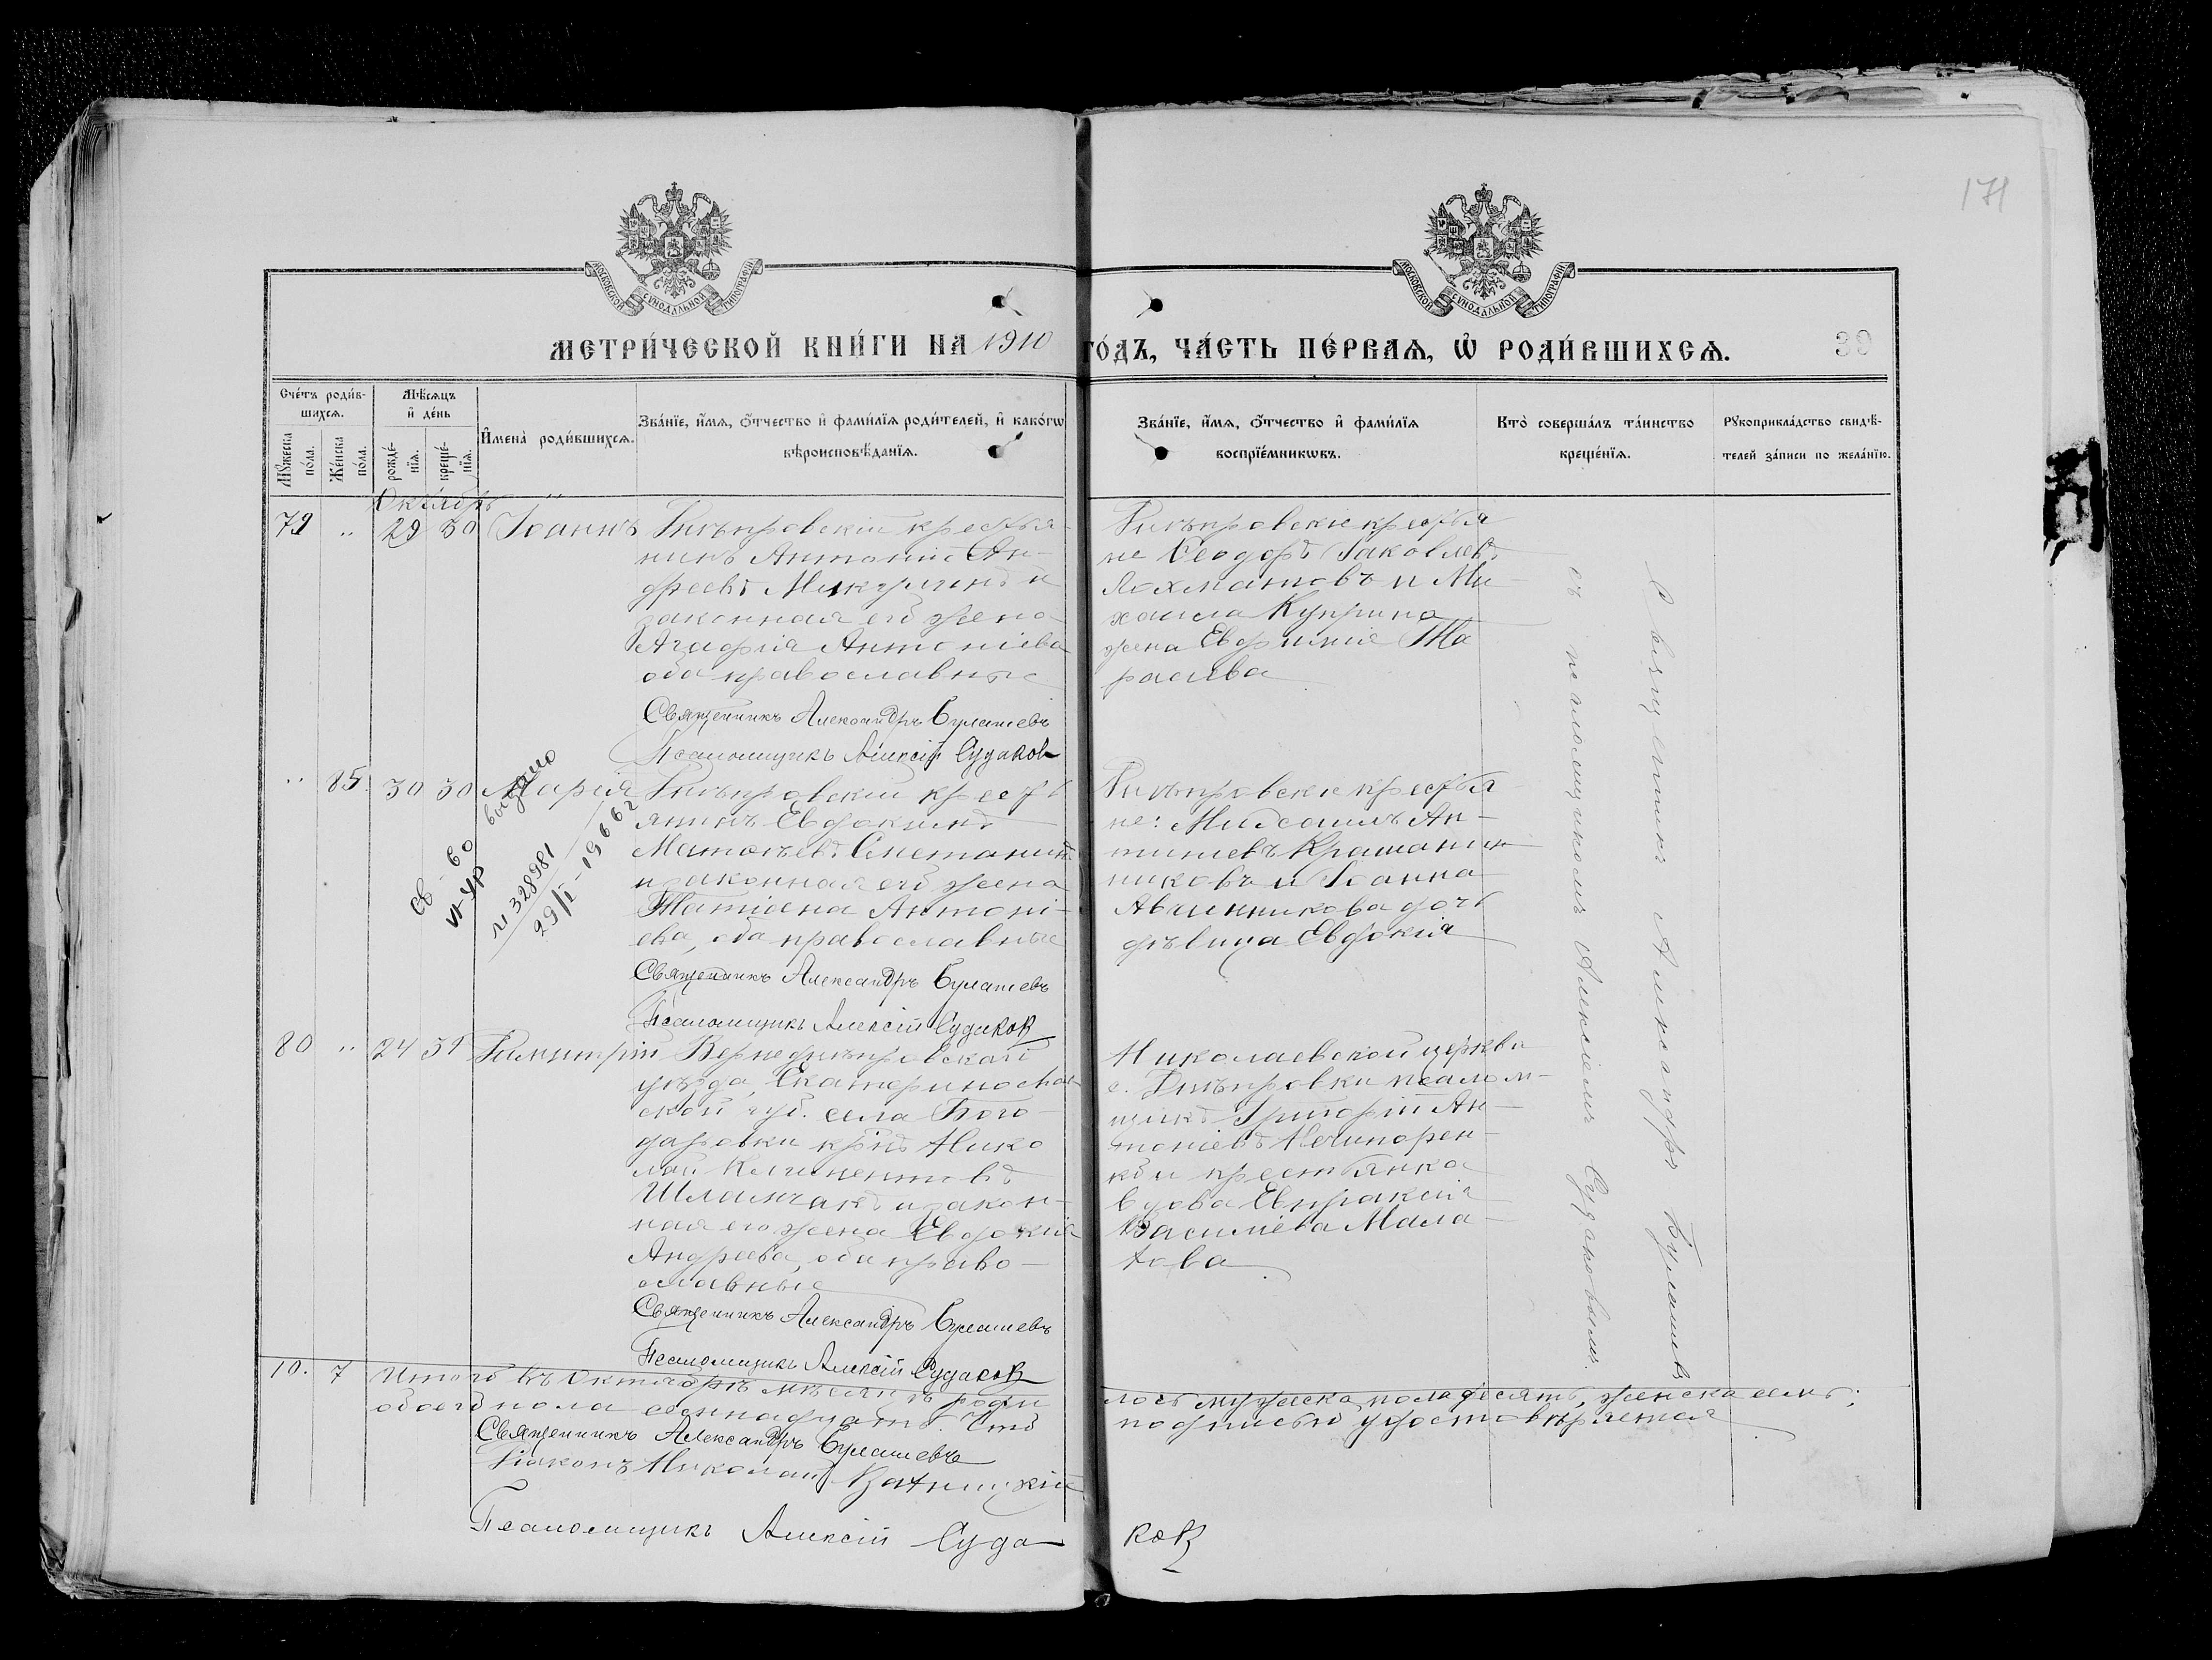 171
МОСКОВСКОЙ СУНОДАЛЬНОЙ ТИПОГРАФІИ
МОСКОВСКОЙ СУНОДАЛЬНОЙ ТИПОГРАФІИ
МЕТРИ́ЧЕСКОЙ КНИ́ГИ НА 1910 ГО́ДЪ, ЧА́СТЬ ПЕ́РВАѦ, Ѿ РОДИ́ВШИХСѦ.
39
Сче́тъ роди́в-
шихсѧ.
Мѣ́сѧцъ
и҆ де́нь
Мꙋ́жеска
по́ла.
Же́нска
по́ла.
рожде́-
нїѧ.
креще́-
нїѧ.
И҆мена̀ роди́вшихсѧ.
Зва́нїе, и҆́мѧ, ѻ҆́тчество и҆ фами́лїѧ роди́телей, и҆ како́гѡ
вѣроисповѣ́данїѧ.
Зва́нїе, и҆́мѧ, ѻ҆́тчество и҆ фами́лїѧ
воспрїе́мникѡвъ.
Кто̀ соверша́лъ та́инство
креще́нїѧ.
Рꙋкоприкла́дство свидѣ́-
телей за́писи по жела́нїю.
Октябрь
79 " 29 30 Іоаннъ
Днѣпровскій крестья-
нинъ Антоній Ан-
дреевъ и
законная его жена
Агафія Антоніева
оба православные
Священникъ Александръ Булашевъ
Псаломщикъ Алексій Судаков
Днѣпровскіе крестья
не Ѳеодоръ Іаковлевъ
Лохматовъ и Ми
хаила Куприна
жена Евфимія Та
расіева
" 85. 30 30 Марія
Днѣпровскій кресть
янинъ Евдокимъ
Матвѣевъ Сметанинъ
и законная его жена
Татіана Антоні-
ева, оба православные
Священникъ Александръ Булашевъ
Псаломщикъ Алексій Судаков
выдано
св-во
№ 328981
29/I-1966 г
Днѣпровскіе крестья
не: Ан-
никовъ и Іоанна
Авчинникова дочь
дѣвица Евдокія
80 " 24 31 Димитрій
Верхнеднѣпровскаго
уѣзда, Екатеринослав
ской губ. села Бого-
даровки кр-нъ Нико
лай Климентовъ
и закон-
ная его жена Евдокія
Андреева, оба право-
славные
Священникъ Александръ Булашевъ
Псаломщикъ Алексій Судаков
Николаевской церкви
с. Днѣпровки псалом-
щикъ Григорій Ан-
тоніевъ Нечипорен-
ко и крестьянка
вдова Евпраксія
Василіева Мала-
хова
Священникъ Александръ Булашевъ
съ псаломщикомъ Алексіемъ Судаковымъ.
10. 7 Итого въ Октябрѣ мѣсяцѣ роди лось мужеска пола десять, женска семь;
обоего пола семнадцать. Что подписью удостовѣряется
Священникъ Александръ Булашевъ
Діаконъ Николай
Псаломщикъ Алексій Суда ков